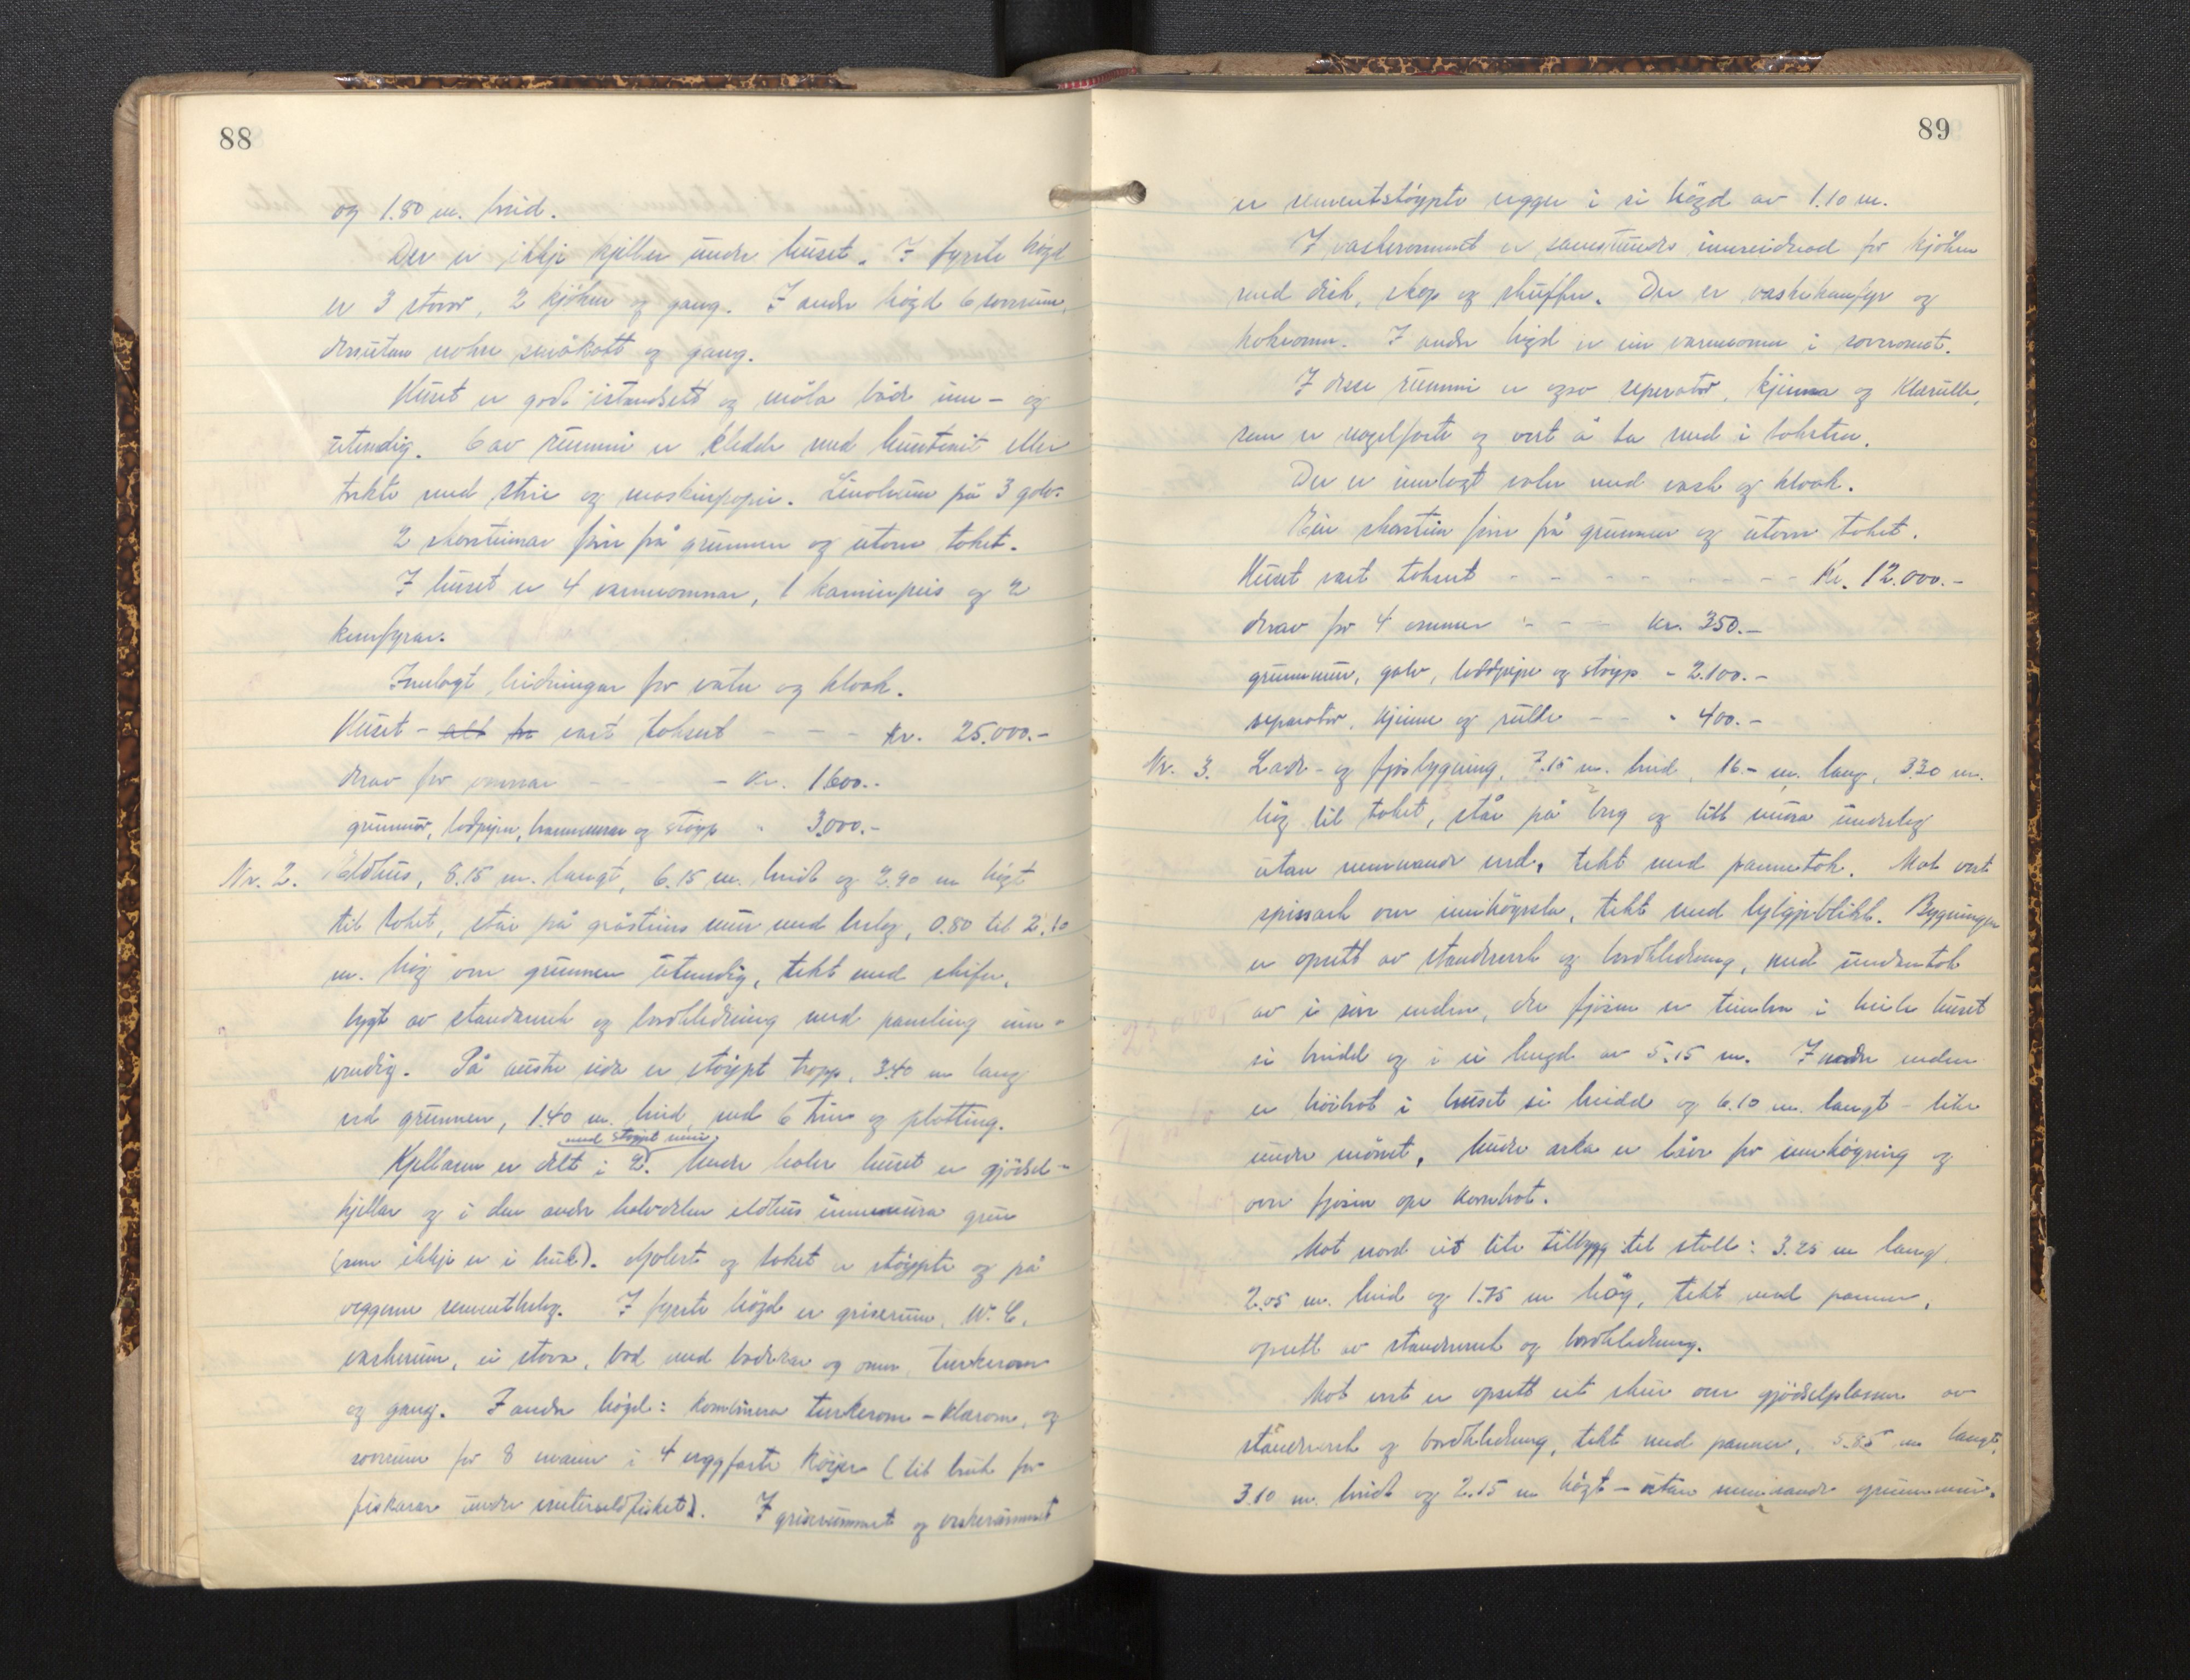 88
og 1.80 m. breid.
Der er ikkje kjeller under huset. I fyrste högd
er 3 stovor, 2 kjöken og gang. I andre högd 6 soverum,
dessutan nokre småkott og gang.
Huset er godt istandsett og måla både inn- og
utvendig. 6 av rummi er kledde med huntonit eller
trekte med strie og maskinpapir. Linoleum på 3 golv.
2 skorsteinar frå på grunnen og utover taket.
I huset er 4 varmeomnar, 1 kaminpeis og 2
komfyrar.
Innlagt leidningar for vatn og kloak.
Huset - alt for vart taksert - - - kr. 25.000.-
Derav for omnar - - - - kr. 1600.-
grunnmur, lodpipe, brannmurar og støyp " 3000.-
Nr. 2. Eldhus, 8.15 m. langt, 6.15 m. breidt og 2.90 m högt
til taket, står på gråsteins mur med belag, 0.80 til 2.10
m. hög over grunnen utvendig, tekt med skifer,
bygt av standverk og bordkledning med paneling inn-
vendig. På austre sida er støypt tropp, 3.40 m lang
ved grunnen, 1.40 m. breid, med 6 trin og platting.
med støypt mur
Kjellaren er delt i 2. Under halve huset er gjödsel-
kjellar og i den andre halvdelen eldhus innmura grue
(som ikkje er i bruk). Golvet og taket er støypte og på
veggene sementbelag. I fyrste högd er griserum, W.C.,
vaskerum, ei stova, bad med badekar og omn, turkerom
og gang. I andre högd: kombinera turkerom - klærom, og
soverum for 8 mann i 4 veggfaste köyer (til bruk for
fiskarar under vintersildfisket). I griserummet og vaskerummet
89
er sementstöypte vegger i ei högd av 1.10 m.
I vaskerommet er samstundes innreidnad for kjöken
med disk, skap og skuffer. Der er vaskekomfyr og
kokeomn. I andre högd er ein varmeomn i soverommet.
I desse rummi er også seperator, kjinna og klærulle,
som er nagelfaste og vert å ta med i taksten.
Der er innlagt vatn med vask og kloak.
Ein skorstein frå på grunnen og utover taket.
Huset vart taksert - - - - - - - - Kr. 12.000.-
derav for 4 omner - - - kr. 350.-
grunnmur, golv, loddpipe og støyp - 2.100.-
separator, kjinne og rulle - - " 400.-
Nr. 3. Lade- og fjösbygning, 7.15 m. breid, 16.- m. lang, 3.30 m.
hög til taket, står på berg og litt mura underlag
utan nemnande verd, tekt med pannetak. Mot vest
spissark over innkögsla, tekt med bylgjeblikk. Bygningen
er opsett av standverk og bordkledning, med undertak
av i enden, der fjösen er timbra i heile huset
si breidd og i ei lengd av 5.15 m. I andre enden
er höibrot i huset si breidd og 6.10 m. langt - like
under mönet. Under arka er låve for innkögning og
over fjösen ope kornbrot.
Mot nord eit lite tilbygg til stall: 3.25 m lang,
2.05 m. breid og 1.75 m høg, tekt med panner,
opsett av standverk og bordkledning.
Mot vest er opsett eit skur over gjödselplassen av
standverk og bordkledning, tekt med panner, 5.85 m langt,
3.10 m. breidt og 2.15 m högt - utan nemnande grunnmur.